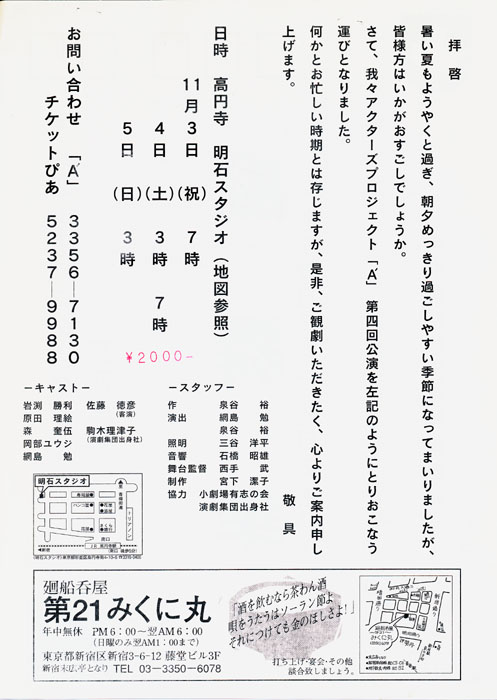 拝啓
暑い夏もようやくと過ぎ、朝夕めっきり過ごしやすい季節になってまいりましたが、
皆様方はいかがおすごしでしょうか。
さて、我々アクターズプロジェクト「A'」第四回公演を左記のようにとりおこなう
運びとなりました。
何かとお忙しい時期とは存じますが、是非、ご観劇いただきたく、心よりご案内申し
上げます。
敬具
日時 高円寺 明石スタジオ(地図参照)
11月3日(祝) 7時
4日(土) 3時 7時
5日(日) 3時
お問い合わせ 「A'」 3356-7130
チケットぴあ 5237-9988
¥2000-
ーキャストー
岩渕 勝利 佐藤 徳彦
(客演)
原田 理絵
森 奎伍 駒木理津子
(演劇集団出身社)
岡部ユウジ
綱島 勉
ースタッフー
作 泉谷 裕
演出 綱島 勉
泉谷 裕
照明 三谷 洋平
音響 石橋 昭雄
舞台監督 西手 武
制作 宮下 潔子
協力 小劇場有志の会
演劇集団出身社
明石スタジオ
トリアノン
南口
JR 高円寺駅
廻船呑屋
第21みくに丸
年中無休 PM6:00〜翌AM6:00
(日曜のみ翌AM1:00まで)
東京都新宿区新宿3-6-12 藤堂ビル3F
新宿末広亭となり TEL 03-3350-6078
「酒を飲むなら茶わん酒
唄をうたうはソーラン節よ
それにつけても金のほしさよ!」
打ち上げ・宴会・その他
談合致しましょう。